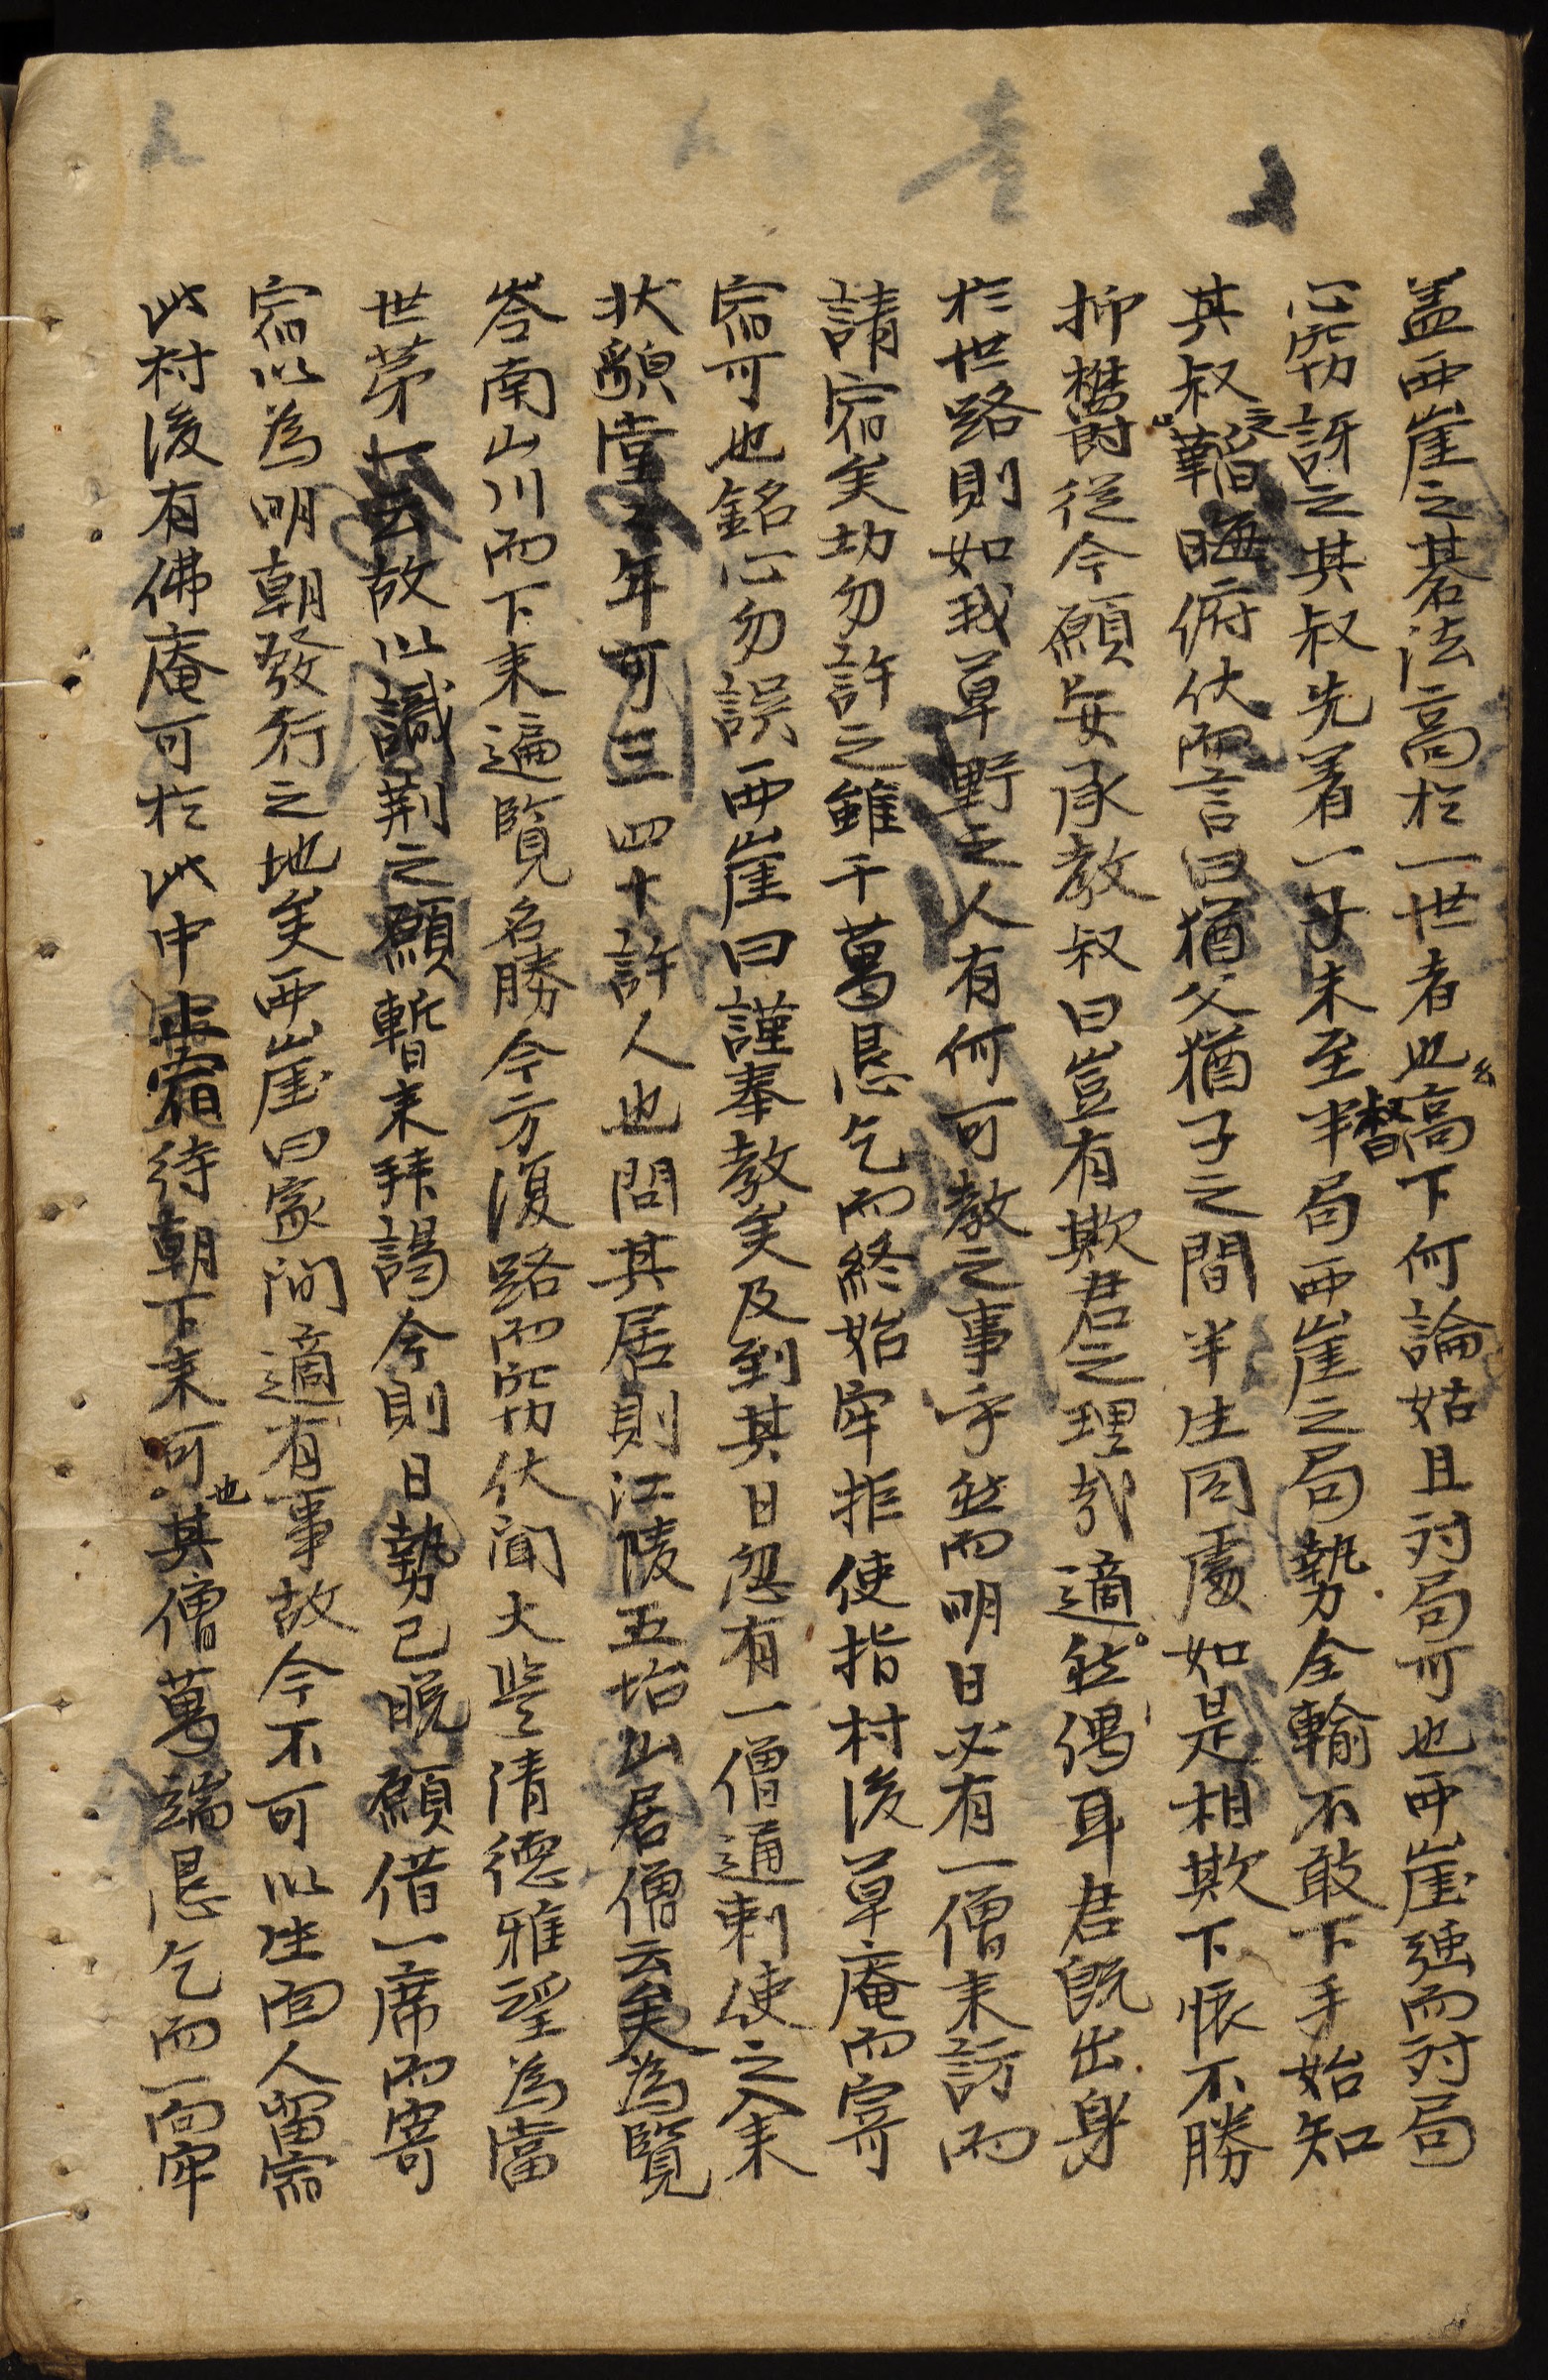 盖西崖之碁法高於一世者也叔高下何論姑且対局可也西崖强而対局
心窃訝之其叔先着一子未至半局西崖之局勢全輸不敢下手始知
其叔之韜晦俯伏而言曰猶父猶子之間半生同處如是相欺下懷不勝
抑欝從今願安承敎叔曰豈有欺君之理哉適然偶耳君旣出身
於世路則如我草野之人有何可敎之事乎然而明日必有一僧来訪而
請宿矣切勿許之雖千萬恳乞而終始牢拒使指村後草庵而寄
宿可也銘心勿誤西崖曰謹奉敎矣及到其日忽有一僧通刺使之入来
狀貌堂々年可三四十許人也問其居則江陵五坮山居僧云矣為覽
岺南山川而下来遍覽名勝今方復路而窃伏聞大監清德雅望為當
世苐一云故以識荆之願暫来拜謁今則日勢已晚願借一席而寄
宿以為明朝發行之地矣西崖曰家间適有事故今不可以生面人留宿
此村後有佛庵可於此中止宿待朝下来可也其僧萬端恳乞而一向牢